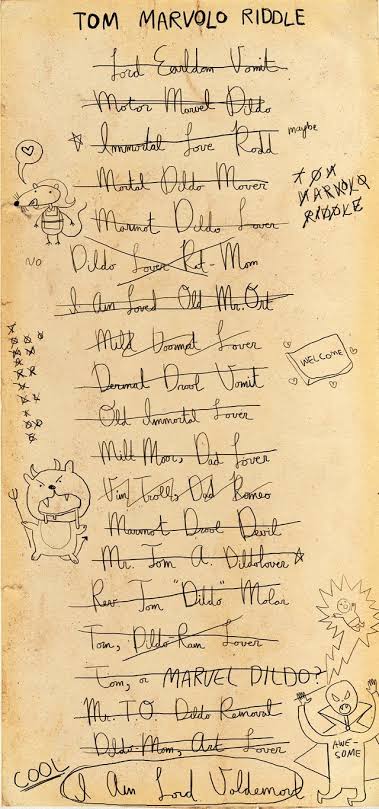 TOM MARVOLO RIDDLE
Lord Earldom Vomit
Motor Marvel Dildo
Immortal Love Rodd
maybe
Mortal Dildo Mover
TOM
MARVOLO
RIDDLE
Marmot Dildo Lover
NO
Dildo Lover Rot-Mom
I Am Loved Old Mr. Ort
Mild Doormat Lover
WELCOME
Dermal Drool Vomit
Old Immortal Lover
Milt Moor, Dad Lover
Vim Troll, Dad Romeo
Marmot Drool Devil
Mr. Tom A. Dildolover
Rev. Tom "Dildo" Molar
Tom, Dildo-Ram Lover
Tom, or MARVEL DILDO?
Mr. T.O. Dildo Removal
Dildo-Mom, Art Lover
AWE-
SOME
COOL
I Am Lord Voldemort